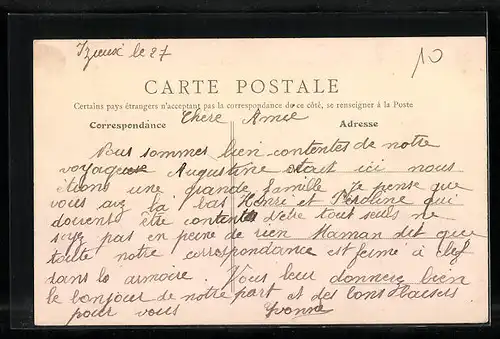 Izieux le 27
10
CARTE POSTALE
Certains pays étrangers n'acceptant pas la correspondance de ce côté, se renseigner à la Poste
Correspondance
Adresse
Chere Amie
Nous sommes bien contentes de notre
voyage Augustine etait ici nous
etions une grande famille je pense que
vous avez la bas Henri et Péroline qui
doivent être contents d'etre tout seuls ne
soyez pas en peine de rien Maman dit que
toute notre correspondance est ferme a clef
dans la armoire. Vous leur donnerez bien
le bonjour de notre part et des bons Baisers
pour vous Yvonne